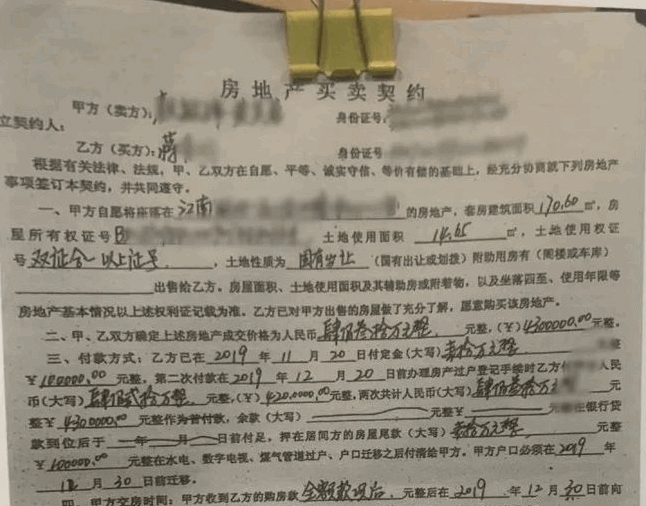 房地产买卖契约
甲方(卖方): 身份证号:
立契约人:
乙方(买方):蒋 身份证号
根据有关法律、法规,甲、乙双方在自愿、平等、诚实守信、等价有偿的基础上,经充分协商就下列房地产
事项签订本契约,并共同遵守。
一、甲方自愿将座落在 江南 的房地产,套房建筑面积 170.60 ㎡,房
屋所有权证号 B 土地使用面积 14.65 ㎡,土地使用权证
号 双证合一以上证号,土地性质为 国有出让 (国有出让或划拨)附助用房有(阁楼或车库)
出售给乙方。房屋面积、土地使用面积及其辅助房或附着物,以及坐落四至、使用年限等
房地产基本情况以上述权利证记载为准。乙方已对甲方出售的房屋做了充分了解,愿意购买该房地产。
二、甲、乙双方确定上述房地产成交价格为人民币 肆佰叁拾万元整 元整,(¥)4300000.00元整。
三、付款方式:乙方已在 2019 年 11 月 20 日付定金(大写) 壹拾万元整
¥100000.00 元整。第二次付款在 2019 年 12 月 20 日前办理房产过户登记手续时乙方 人民
币(大写) 肆佰贰拾万整 元整,(¥)4200000.00元整,两次共计人民币(大写) 肆佰叁拾万元整 元
整¥4300000.00 元整作为首付款,余款(大写) 元整¥ 元 在银行贷
款到位后于 年 月 日前付足,押在居间方的房屋尾款(大写) 壹拾万元整 元整
¥100000.00 元整在水电、数字电视、煤气管道过户、户口迁移之后付清给甲方。甲方户口必须在 2019 年
12 月 30 日前迁移。
四、甲方交房时间:甲方收到乙方的购房款 全额款项后 元整后在 2019 年 12 月 30 日前向